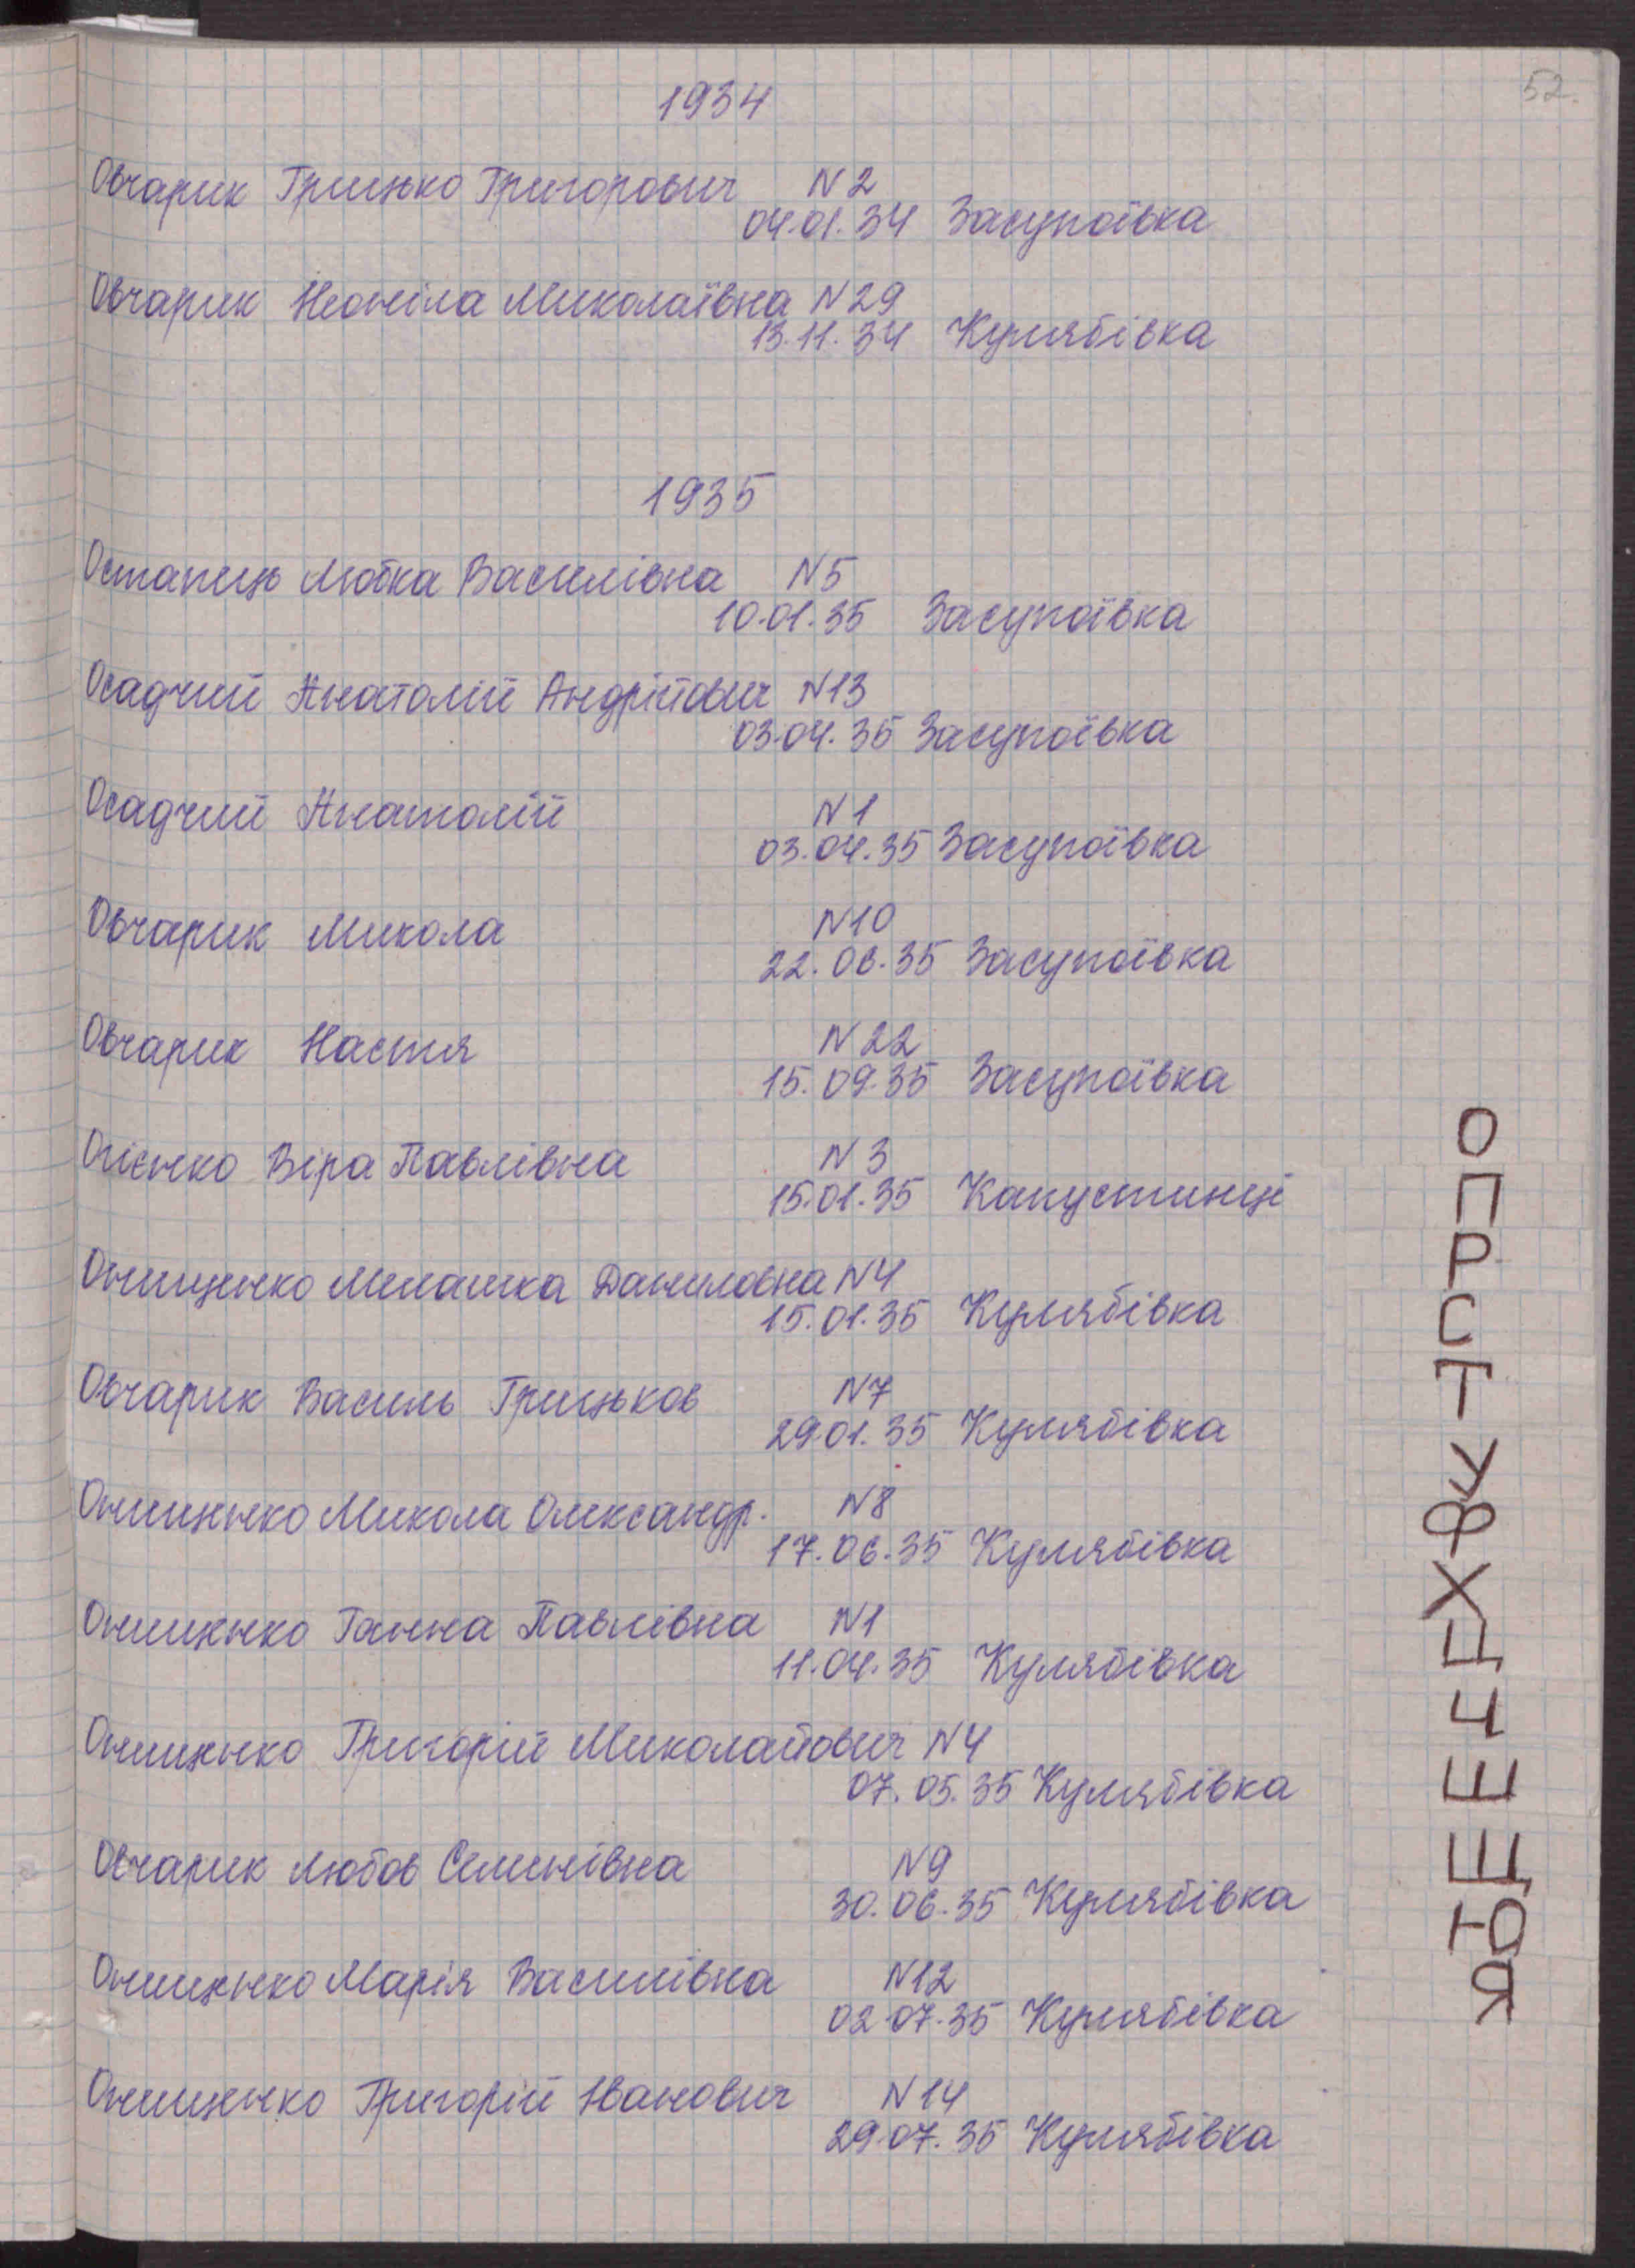 52.
1934
Овчарик Грицько Григорович N2
04.01.34 Засупоївка
Овчарик Неоніла Миколаївна N29
13.11.34 Кулябівка
1935
Остапець Любка Василівна N5
10.01.35 Засупоївка
Осадчий Анатолій Андрійович N13
03.04.35 Засупоївка
Осадчий Анатолій N1
03.04.35 Засупоївка
Овчарик Микола N10
22.06.35 Засупоївка
Овчарик Настя N22
15.09.35 Засупоївка
Огієнко Віра Павлівна N3
15.01.35 Капустинці
Онищенко Мелашка Даниловна N4
15.01.35 Кулябівка
Овчарик Василь Грицьков N7
29.01.35 Кулябівка
Онищенко Микола Олександр. N8
17.06.35 Кулябівка
Онищенко Ганна Павлівна N1
11.04.35 Кулябівка
Онищенко Григорій Миколайович N4
07.05.35 Кулябівка
Овчарик Любов Семенівна N9
30.06.35 Кулябівка
Онищенко Марія Василівна N12
02.07.35 Кулябівка
Онищенко Григорій Іванович N14
29.07.35 Кулябівка
О
П
Р
С
Т
У
Ф
Х
Ц
Ч
Ш
Щ
Ю
Я